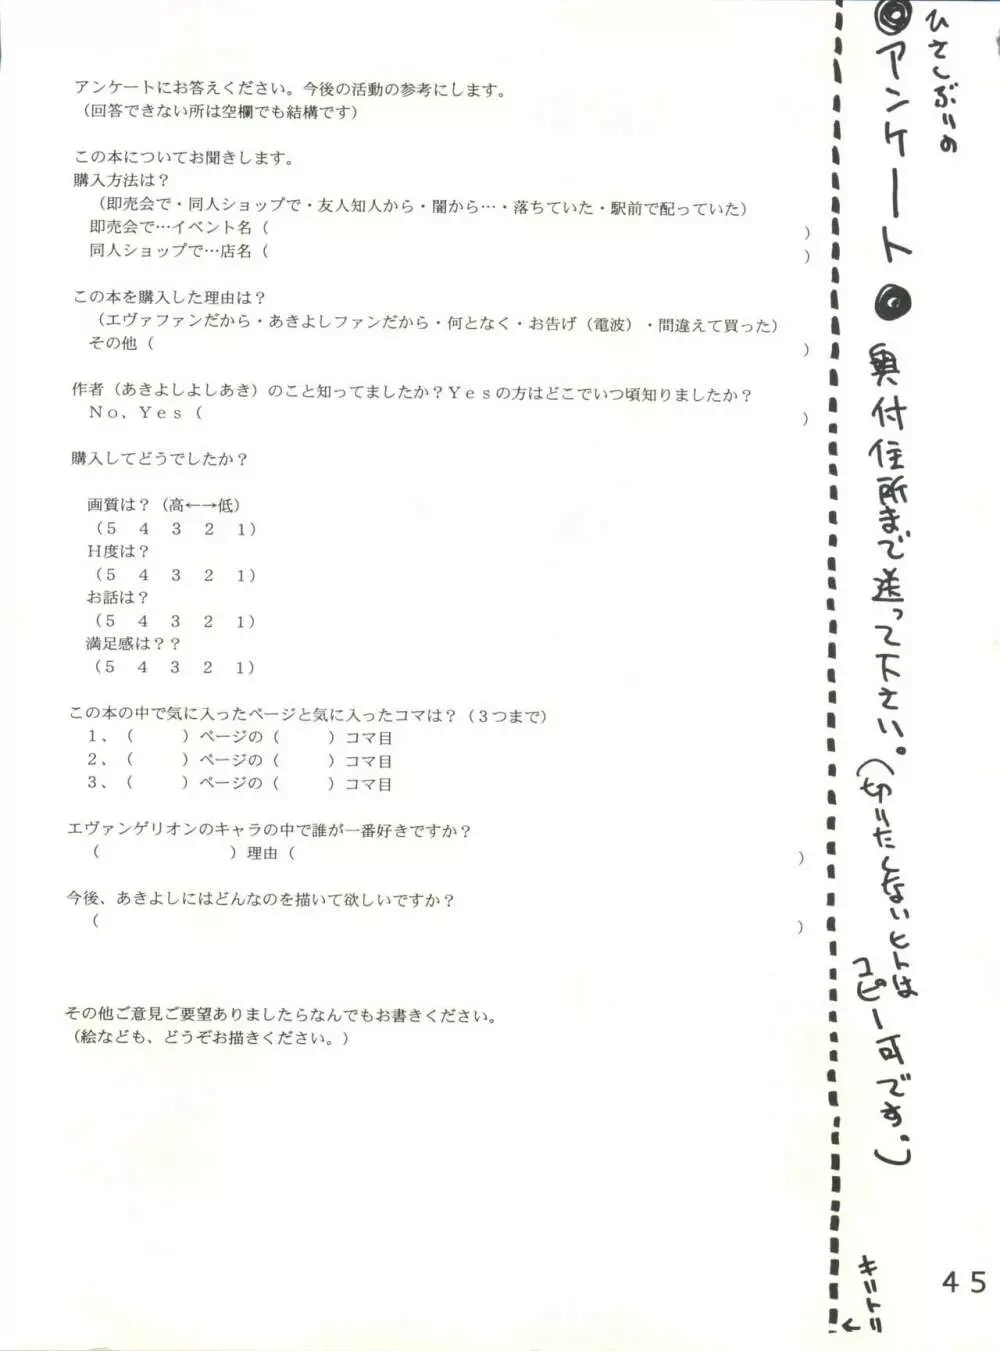 ひさしぶりの
◎アンケート◎
奥付住所まで送って下さい。
(切りたくないヒトは
コピー可です。)
キリトリ
アンケートにお答えください。今後の活動の参考にします。
(回答できない所は空欄でも結構です)
この本についてお聞きします。
購入方法は?
(即売会で・同人ショップで・友人知人から・闇から…・落ちていた・駅前で配っていた)
即売会で…イベント名( )
同人ショップで…店名( )
この本を購入した理由は?
(エヴァファンだから・あきよしファンだから・何となく・お告げ(電波)・間違えて買った)
その他( )
作者(あきよしよしあき)のこと知ってましたか?Yesの方はどこでいつ頃知りましたか?
No、Yes( )
購入してどうでしたか?
画質は?(高←→低)
(5 4 3 2 1)
H度は?
(5 4 3 2 1)
お話は?
(5 4 3 2 1)
満足感は??
(5 4 3 2 1)
この本の中で気に入ったページと気に入ったコマは?(3つまで)
1、( )ページの( )コマ目
2、( )ページの( )コマ目
3、( )ページの( )コマ目
エヴァンゲリオンのキャラの中で誰が一番好きですか?
( )理由( )
今後、あきよしにはどんなのを描いて欲しいですか?
( )
その他ご意見ご要望ありましたらなんでもお書きください。
(絵なども、どうぞお描きください。)
45